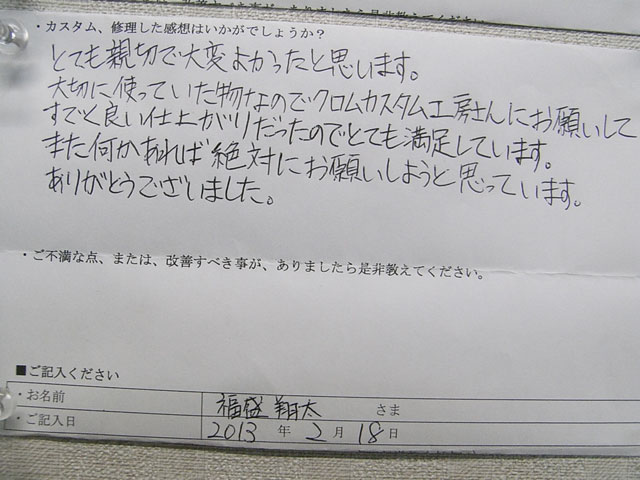 ・カスタム、修理した感想はいかがでしょうか？
とても親切で大変よかったと思います。
大切に使っていた物なのでクロムカスタム工房さんにお願いして
すごく良い仕上がりだったのでとても満足しています。
また何かあれば絶対にお願いしようと思っています。
ありがとうございました。
・ご不満な点、または、改善すべき事が、ありましたら是非教えてください。
■ご記入ください
・お名前 福盛 翔太 さま
・ご記入日 2013 年 2 月 18 日